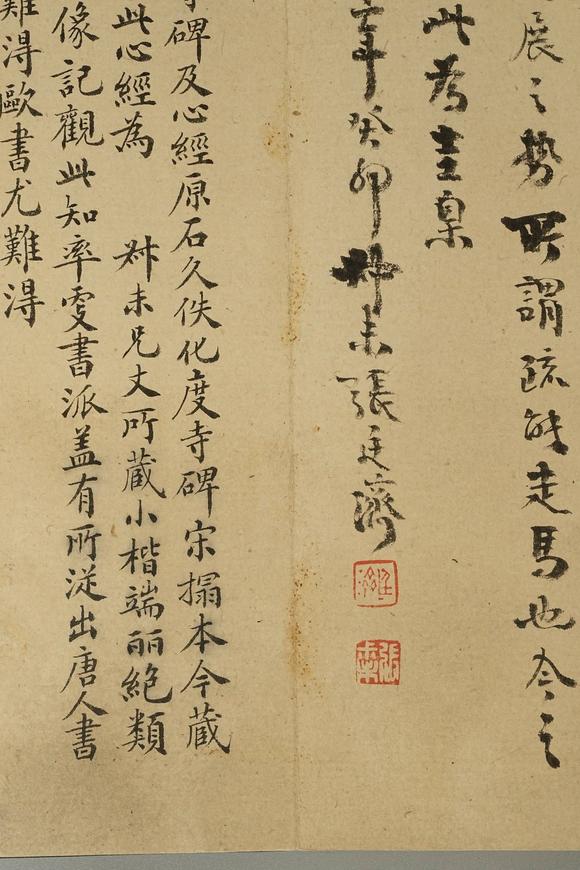 展之勢所謂疏能走馬也今之
此為圭臬
年癸卯叔未張廷濟
碑及心經原石久佚化度寺碑宋搨本今藏
此心經為 叔未兄丈所蔵小楷端丽絶類
像記觀此知率更書派盖有所從出唐人書
難得歐書尤難得